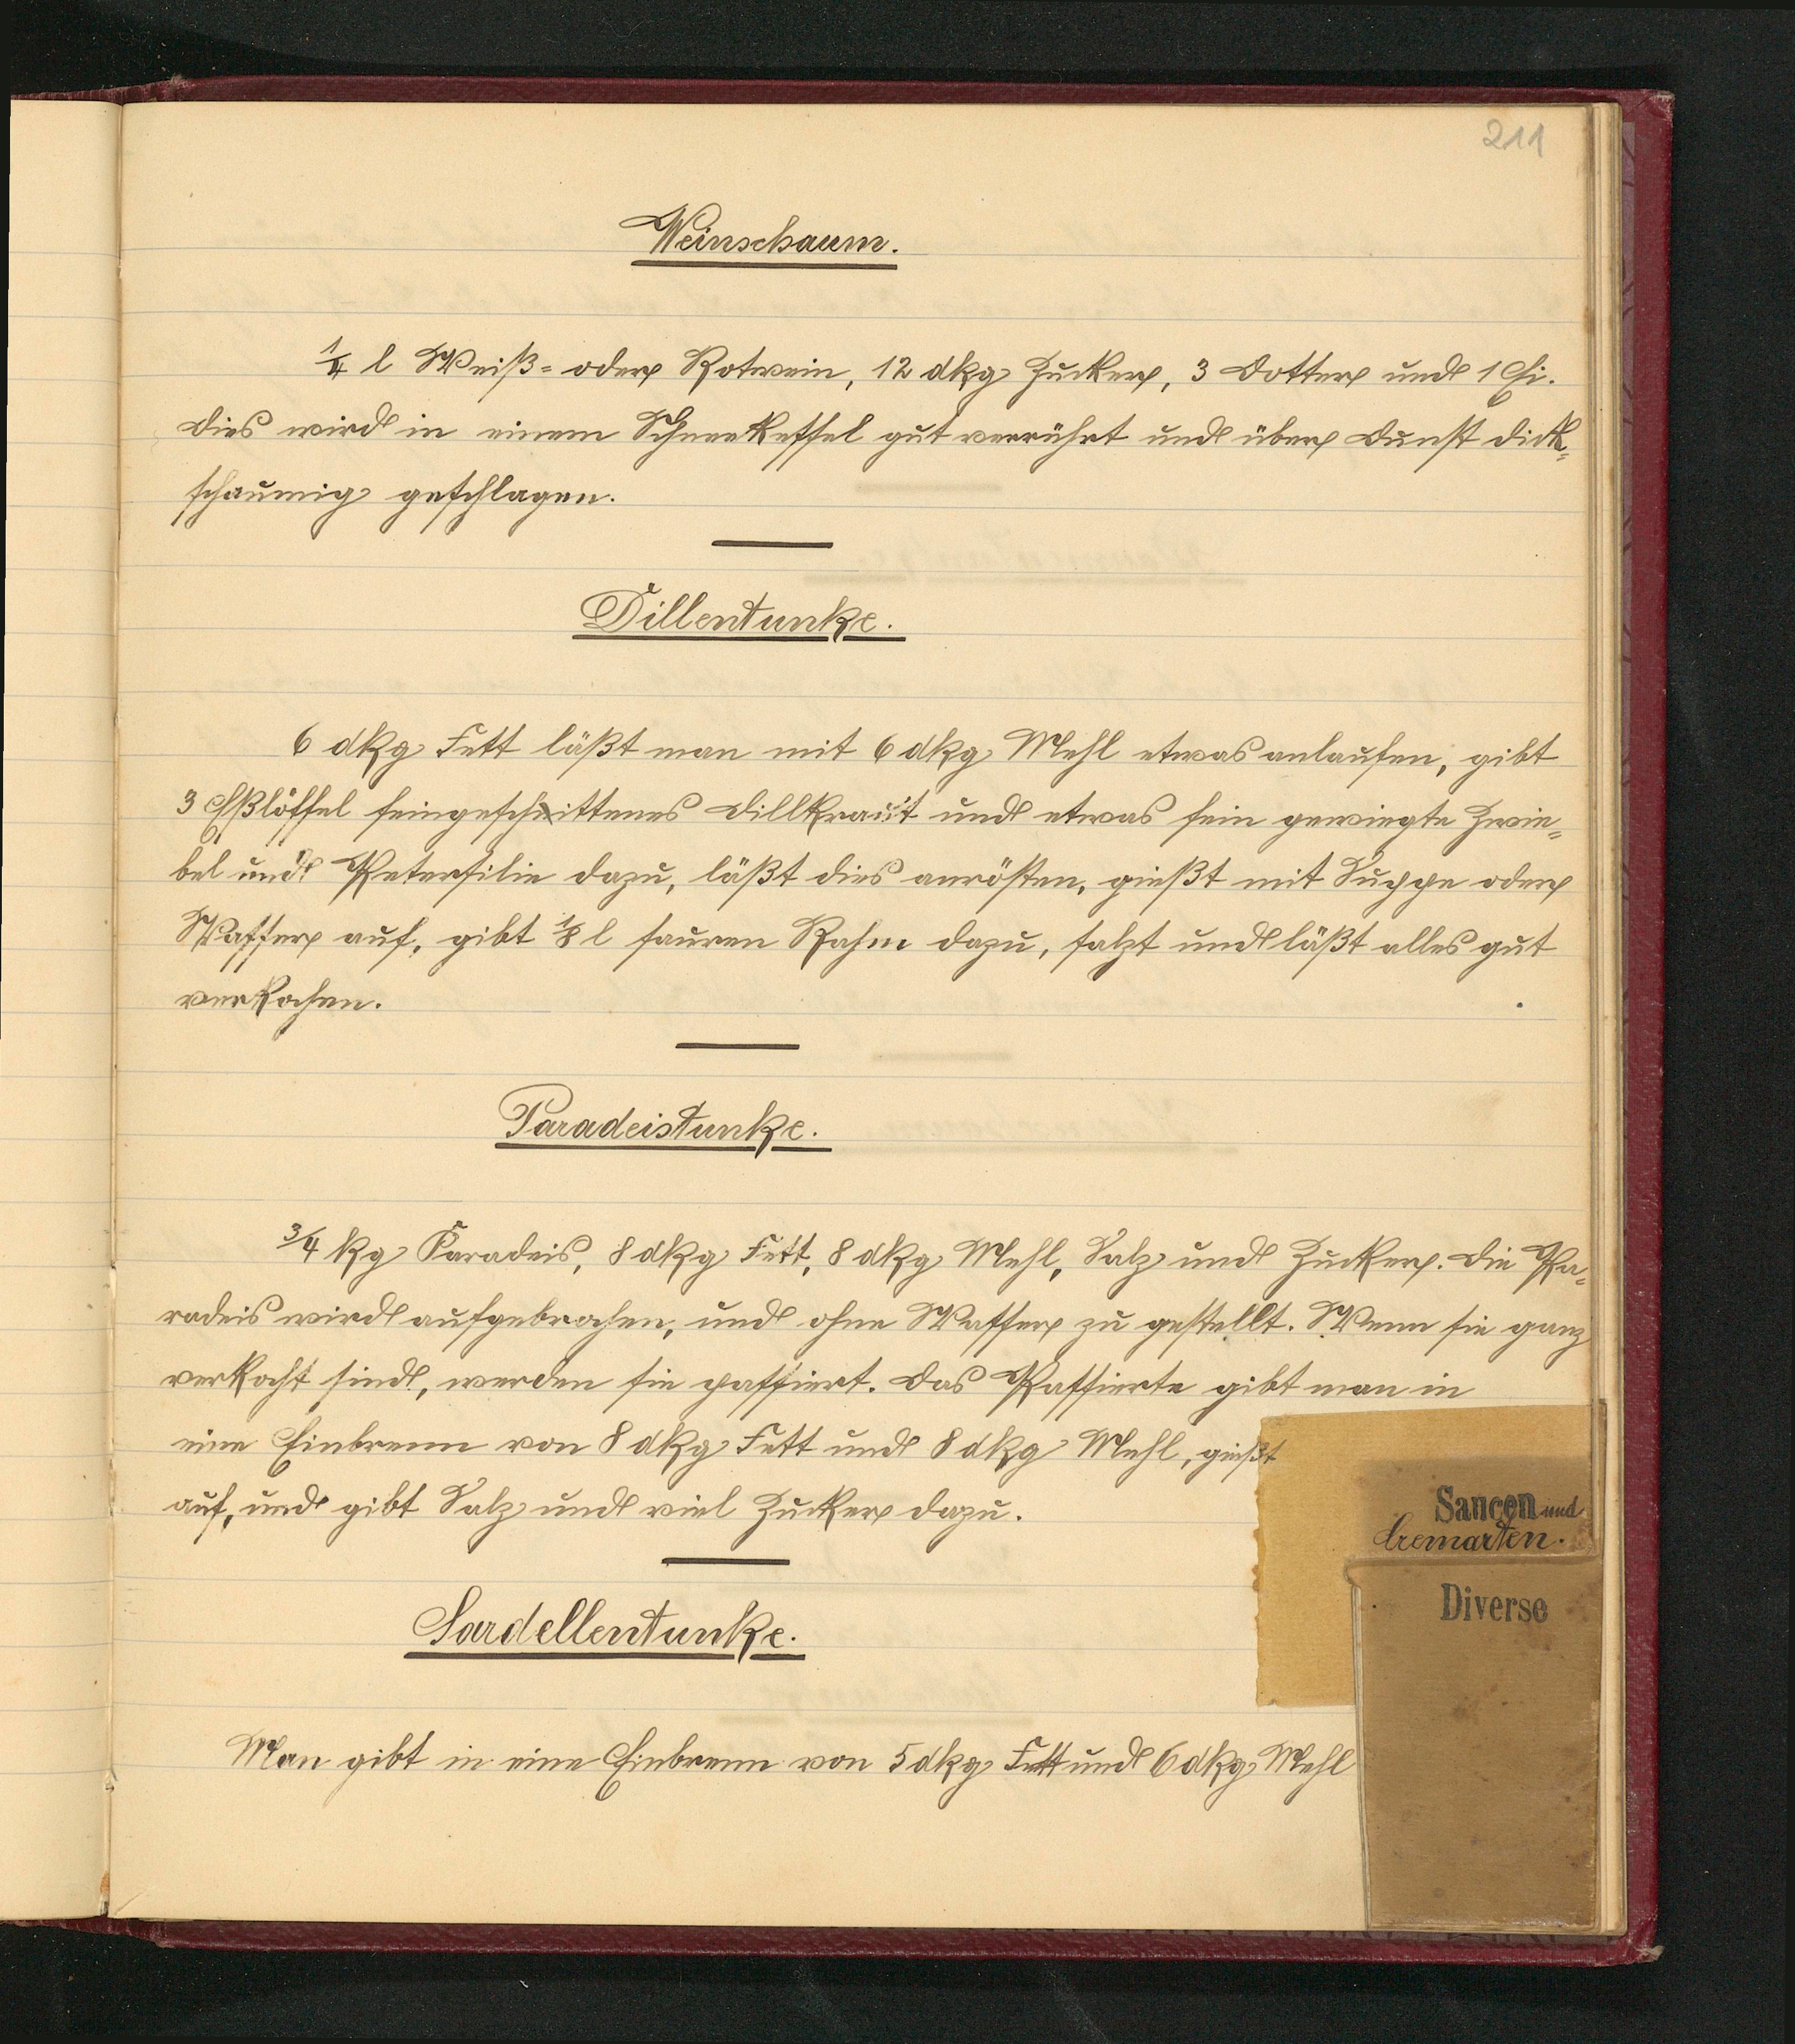 211
Weinschaum.
1/4 l Weiß- oder Rotwein, 12 dkg Zucker, 3 Dotter und 1 Ei.
Dies wird in einem Schneekessel gut verrührt und über Dunst dick-
schaumig geschlagen.
Dillentunke.
6 dkg Fett läßt man mit 6 dkg Mehl etwas anlaufen, gibt
3 Eßlöffel feingeschnittenes Dillkraut und etwas fein gewiegte Zwie-
bel und Petersilie dazu, läßt dies anrösten, gießt mit Suppe oder
Wasser auf, gibt 1/8 l sauren Rahm dazu, salzt und läßt alles gut
verkochen.
Paradeistunke.
3/4 kg Paradeis, 8 dkg Fett, 8 dkg Mehl, Salz und Zucker. Die Pa-
radeis wird aufgebrochen, und ohne Wasser zu gestellt. Wenn sie ganz
verkocht sind, werden sie passiert. Das Passierte gibt man in
eine Einbrenn von 8 dkg Fett und 8 dkg Mehl, gießt
auf, und gibt Salz und viel Zucker dazu.
Saucen und
Cremarten.
Diverse
Sardellentunke.
Man gibt in eine Einbrenn von 5 dkg Fett und 6 dkg Mehl